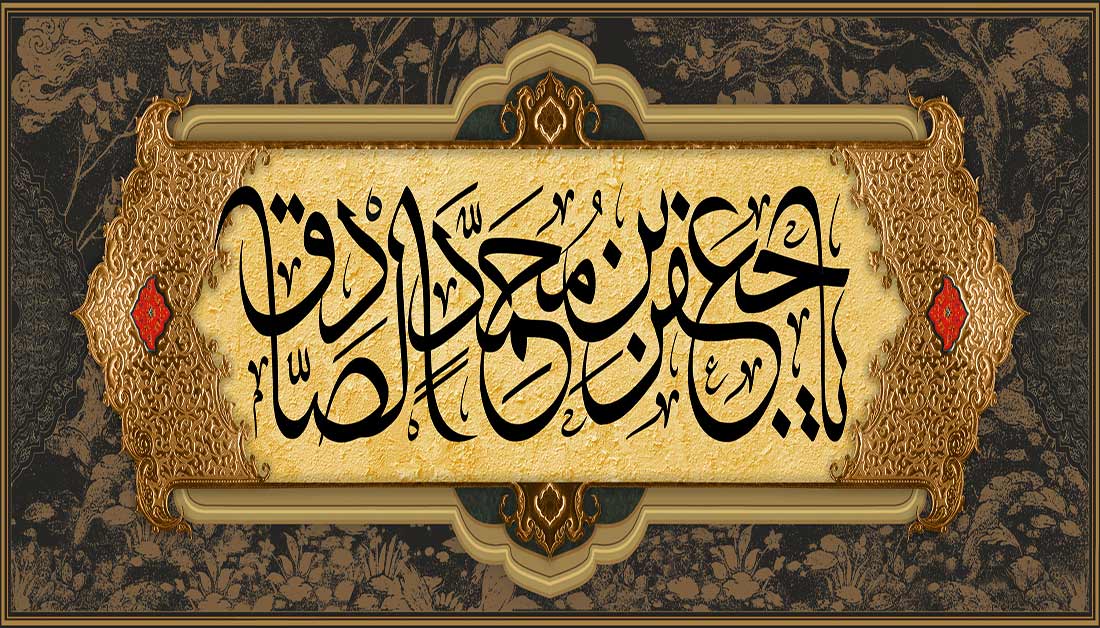 يا جَعفَر بن مُحَمَّدٍ الصّادِق